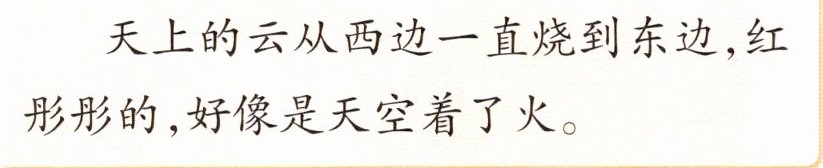 天上的云从西边一直烧到东边,红
彤彤的,好像是天空着了火。